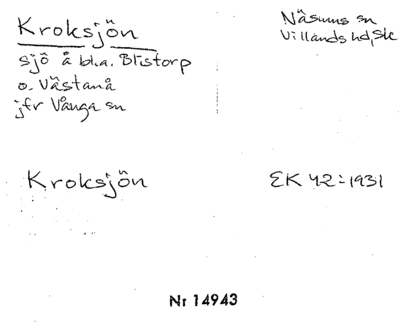 Kroksjön
sjö å bl.a. Blistorp
o. Västanå
jfr Vånga sn
Näsums sn
Villands hd, Sk
Kroksjön
EK 42:1931
Nr 14943